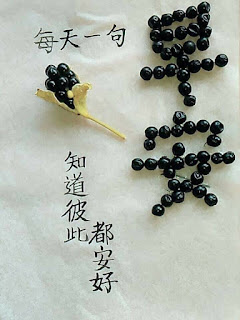 每天一句
早安
知道彼此
都安好